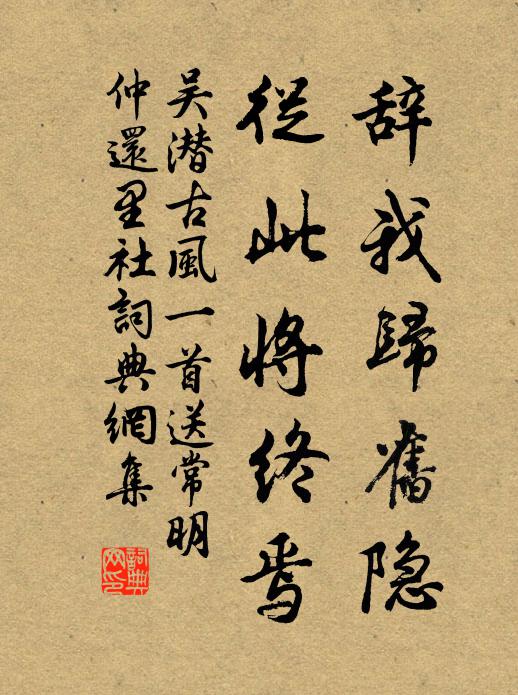 辞我歸舊隐
從此将终焉
吴潜古風一首送常明
仲還里社詞典網集
詞典网印